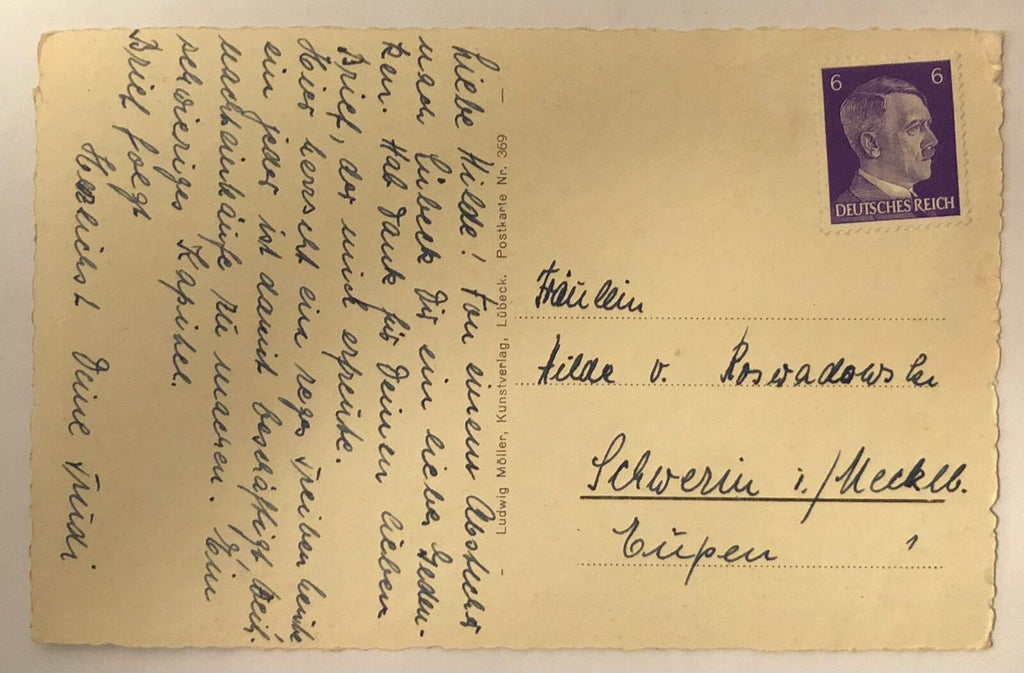 Liebe Hilde! Von einem Abstecher
nach Lübeck Dir ein liebes Geden-
ken. Hab Dank für Deinen lieben
Brief, der mich erfreute.
Hier herrscht ein reges Treiben heute
ein jeder ist damit beschäftigt Weih-
nachtseinkäufe zu machen. Ein
schwieriges Kapitel.
Brief folgt
Herzlichst Deine Trudi
- Ludwig Möller, Kunstverlag, Lübeck. Postkarte Nr. 369 -
6 6
DEUTSCHES REICH
Fräulein
Hilde v. Roswadowski
Schwerin i./Mecklb.